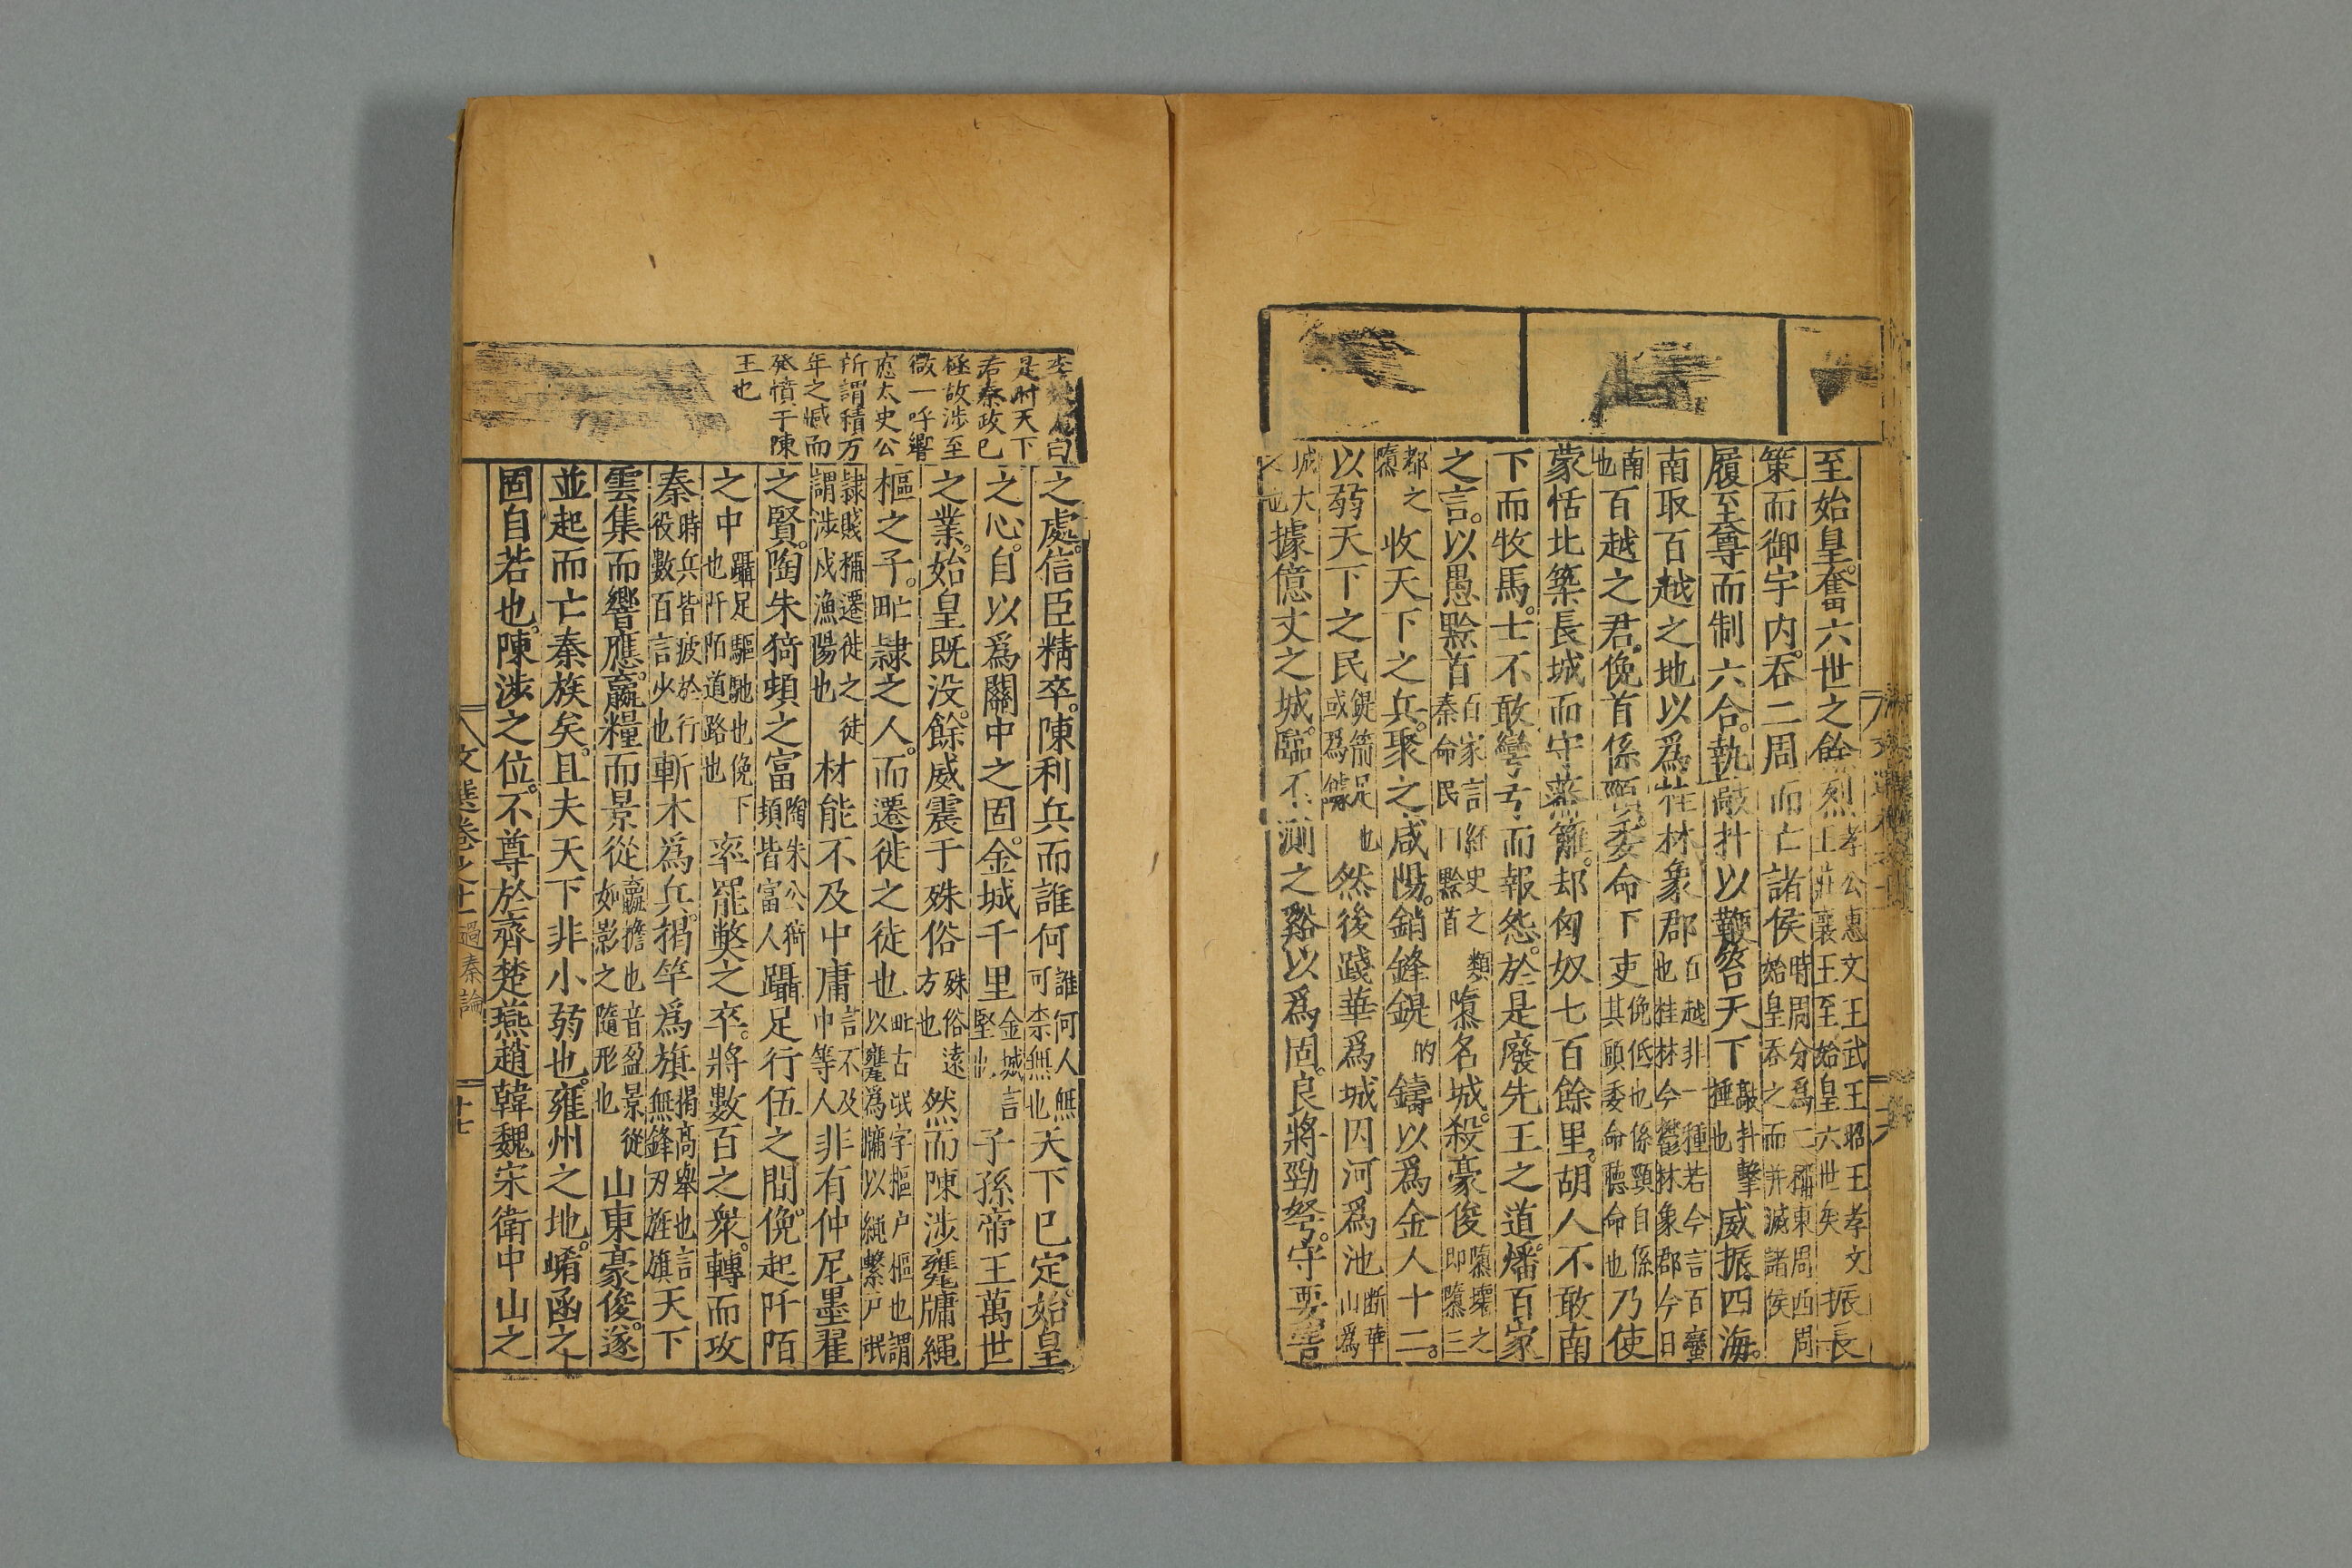 至始皇奮六世之餘烈孝公惠文王武王昭王孝文王莊襄王至始皇六世矣振長
策而御宇内吞二周而亡諸侯時周分爲二稱東周西周始皇吞之而并滅諸侯
履至尊而制六合執敲扑以鞭笞天下敲扑擊捶也威振四海
南取百越之地以爲桂林象郡百越非一種若今言百蠻也桂林今鬱林象郡今日
南也百越之君俛首係頸委命下吏俛低也係頸自係其頸委命聽命也乃使
蒙恬北築長城而守蕃籬却匈奴七百餘里胡人不敢南
下而牧馬士不敢彎弓而報怨於是廢先王之道燔百家
之言以愚黔首百家言經史之類秦命民曰黔首隳名城殺豪俊隳壞之即隳三
都之隳收天下之兵聚之咸陽銷鋒鍉的鑄以爲金人十二
以弱天下之民鍉箭足也或爲鐻然後踐華爲城因河爲池斷華山爲
城大之也據億丈之城臨不測之谿以爲固良將勁弩守要害
之處信臣精卒陳利兵而誰何誰何人無可柰無也天下已定始皇
之心自以爲關中之固金城千里金城言堅也子孫帝王萬世
之業始皇既没餘威震于殊俗殊俗遠方也然而陳涉甕牖繩
樞之子甿隷之人而遷徙之徒也甿古氓字樞户樞也謂以甕爲牖以繩繫户氓
隷賤稱遷徙之徒謂涉戍漁陽也材能不及中庸言不及中等人非有仲尼墨翟
之賢陶朱猗頓之富陶朱朱公猗頓皆富人躡足行伍之間俛起阡陌
之中躡足驅馳也俛下也阡陌道路也率罷弊之卒將數百之衆轉而攻
秦時兵皆疲於行役數百言少也斬木爲兵揭竿爲旗揭高舉也言無鋒刃旌旗天下
雲集而響應贏糧而景從贏擔也音盈景從如影之隨形也山東豪俊遂
並起而亡秦族矣且夫天下非小弱也雍州之地崤函之
固自若也陳涉之位不尊於齊楚燕趙韓魏宋衛中山之
曰
是時天下
若秦政已
極故涉至
微一呼響
應太史公
所謂積万
年之憾而
發憤于陳
王也
文選卷之十一 過秦論 十七